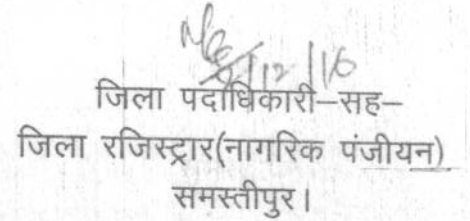 जिला पदाधिकारी–सह–
जिला रजिस्ट्रार(नागरिक पंजीयन)
समस्तीपुर।